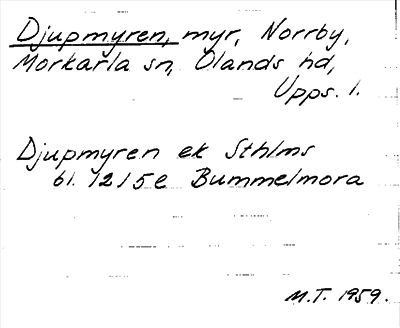 Djupmyren, myr, Norrby,
Morkarla sn, Olands hd,
Upps. l.
Djupmyren ek Sthlms
bl. 12I5e Bummelmora
M.T. 1959.